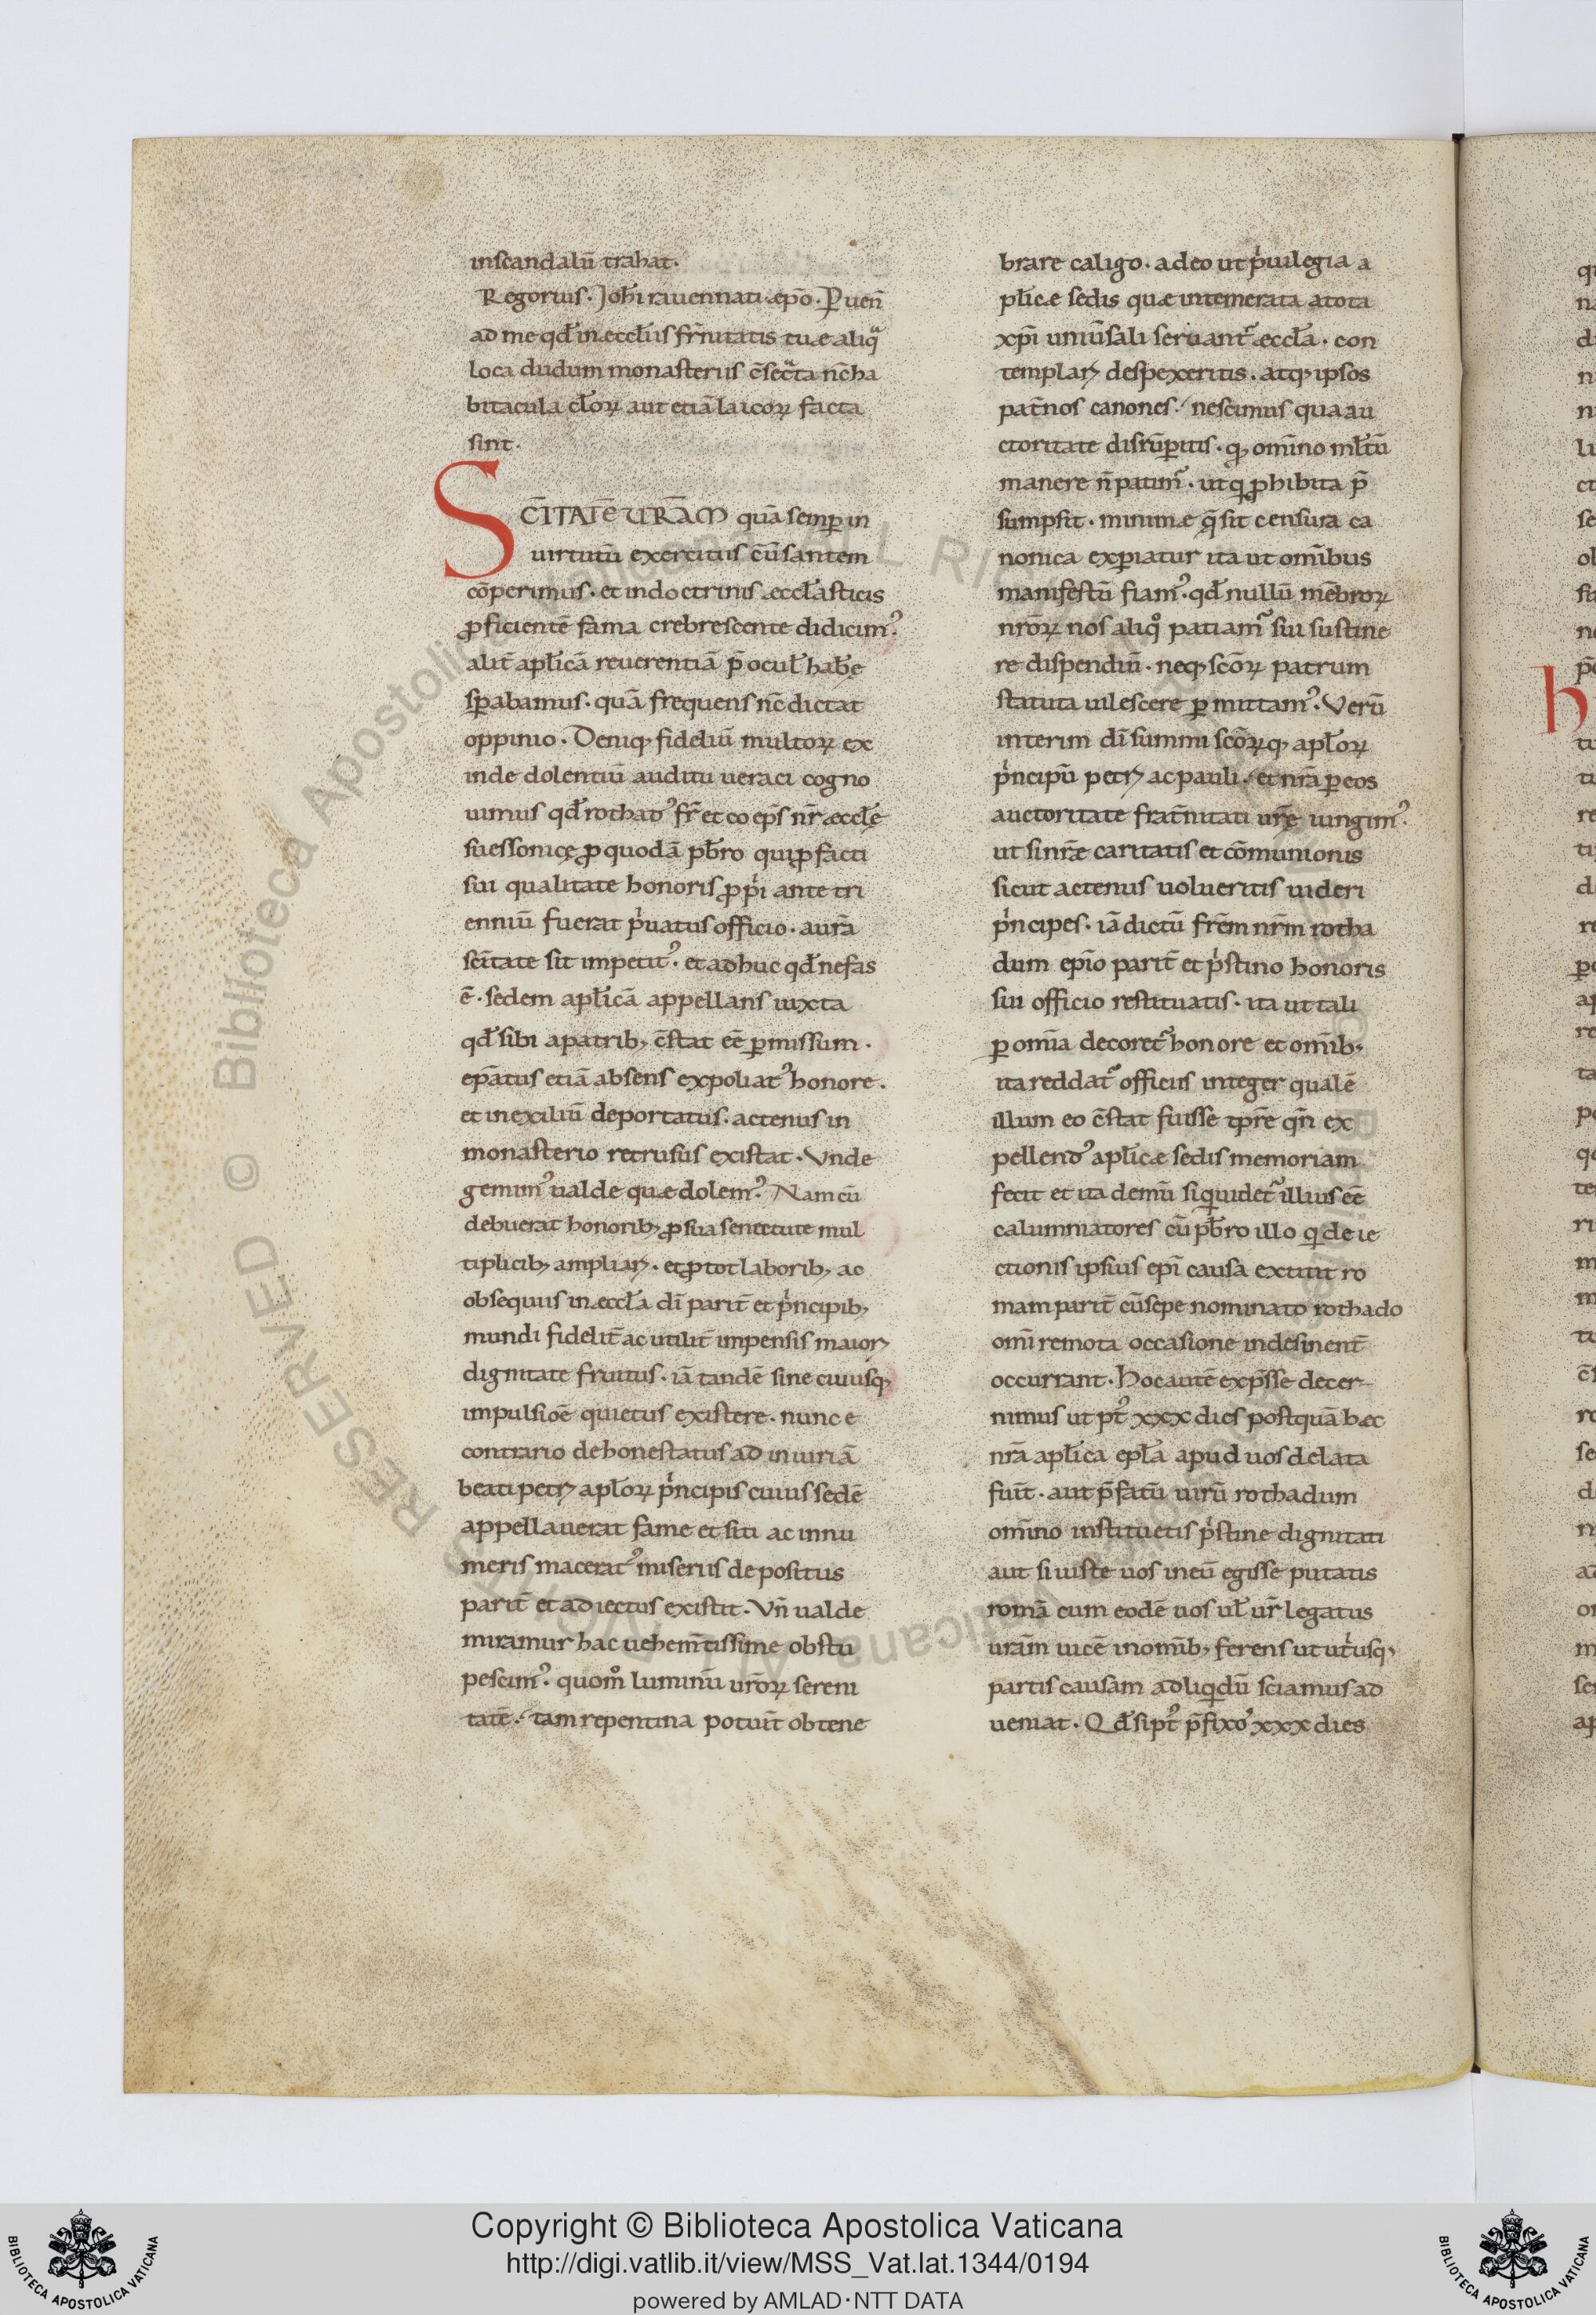 inscandalū trahat.
Regorius. Joh̄i rauennati æpō. Ꝑuen̄
ad me qđ in æccłiis fr̄nitatis tuæ aliqͣ
loca dudum monasteriis c̄secͣta nc̄ ha
bitacula cłoꝝ aut etiā laicoꝝ facta
sint.
SCĪTATĒ VRAM quā semꝑ in
uirtutū exercitus c̄uersantem
cōperimus. et indoctrinis æccłasticis
ꝓficientē fama crebrescente didicimꝰ.
alit̄ apłicā reuerentiā p̄ oculł hab̄e
sꝑabamus. quā frequens nc̄ dictat
oppinio. Deniq; fideliū multoꝝ ex
inde dolentiū auditu ueraci cogno
uimus qđ rothadꝰ fr̄ et coep̄s nr̄ æccłę
suessonicę ꝓ quodā pb̄ro qui ꝓ facti
sui qualitate honoris ꝓpi ante tri
enniū fuerat pͥuatus officio. aurā
scītate sit impetitꝰ. et adhuc qđ nefas
ē. sedem apłicā appellans iuxta
qđ sibi apatrib; c̄stat eē ꝑmissum.
ep̄atus etiā absens expoliatꝰ honore.
et inexiliū deportatus. actenus in
monasterio retrusus existat. Vnde
gemimꝰ ualde quæ dolemꝰ. Nam cū
debuerat honorib; ꝓ sua senectute mul
tiplicib; ampliari. et ꝓ tot laborib; ac
obsequiis in æccła dī parit̄ et pͥncipib;
mundi fidelit̄ ac utilit̄ impensis maiori
dignitate fruitus. iā tandē sine cuiusq;
impulsiōe quietus existere. nunc e
contrario dehonestatus ad iniuriā
beati petri apłoꝝ pͥncipis cuius sedē
appellauerat fame et siti ac innu
meris maceratꝰ miseriis depositus
parit̄ et adiectus existit. Vn̄ ualde
miramur hac uehem̄tissime obstu
pescimꝰ. quom̊ luminū ur̄oꝝ sereni
tatē. tam repentina potuit̄ obtene
brare caligo. adeo ut pͥuilegia a
płicæ sedis quæ intemerata atota
xp̄i uniūsali seruant᷑ æccła. con
templari despexeritis. atq; ipsos
pat̄nos canones. nescimus qua au
ctoritate disrūpitis. q; omīno młtū
manere n̄ patim᷑. ut q ꝓhibita p̄
sumpsit. minime q̄ sit censura ca
nonica exꝑiatur ita ut omībus
manifestū fiamꝰ. qđ nullū mēbroꝝ
nr̄oꝝ nos aliq̊ patiam᷑ sui sustine
re dispendiū. neq; sc̄oꝝ patrum
statuta uilescere ꝑmittamꝰ. Verū
interim dī summi sc̄oꝝq; apłoꝝ
pͥncipū petri ac pauli. et nr̄a ꝑ eos
auctoritate frat̄nitati ur̄ę iungimꝰ.
ut si nr̄æ caritatis et cōmunionis
sicut actenus uolueritis uideri
pͥncipes. iā dictū frēm nr̄m rotha
dum epīo parit̄ et pͥstino honoris
sui officio restituatis. ita ut tali
ꝑ omīa decoret᷑ honore et omīb;
ita reddat᷑ officiis integer qualē
illum eo c̄stat fuisse tpr̄e qn̄ ex
pellendꝰ apłicæ sedis memoriam
fecit et ita demū siquidet᷑ illius eē
calummatores cū pb̄ro illo q deie
ctionis ipsius epī causa extitit ro
mam parit̄ cū sepe nominato rothado
omī remota occasione indesinent̄
occurrant. Hoc autē exp̄sse decer-
nimus ut ptꝰ xxx dies postquā hæc
nr̄a apłica epła apud uos delata
fuit̄. aut p̄fatū uirū rothadum
omīno instituetis pͥstine dignitati
aut si iuste uos in eū egisse putatis
romā cum eodē uos uł ur̄ legatus
urām uicē in omīb; ferens ut utͥusq;
partis causam ad liqdū sciamus ad
ueniat. Qđ si ptꝰ p̄fixoꝰ xxx dies
Copyright © Biblioteca Apostolica Vaticana
http://digi.vatlib.it/view/MSS_Vat.lat.1344/0194
powered by AMLAD·NTT DATA
BIBLIOTECA APOSTOLICA VATICANA
BIBLIOTECA APOSTOLICA VATICANA